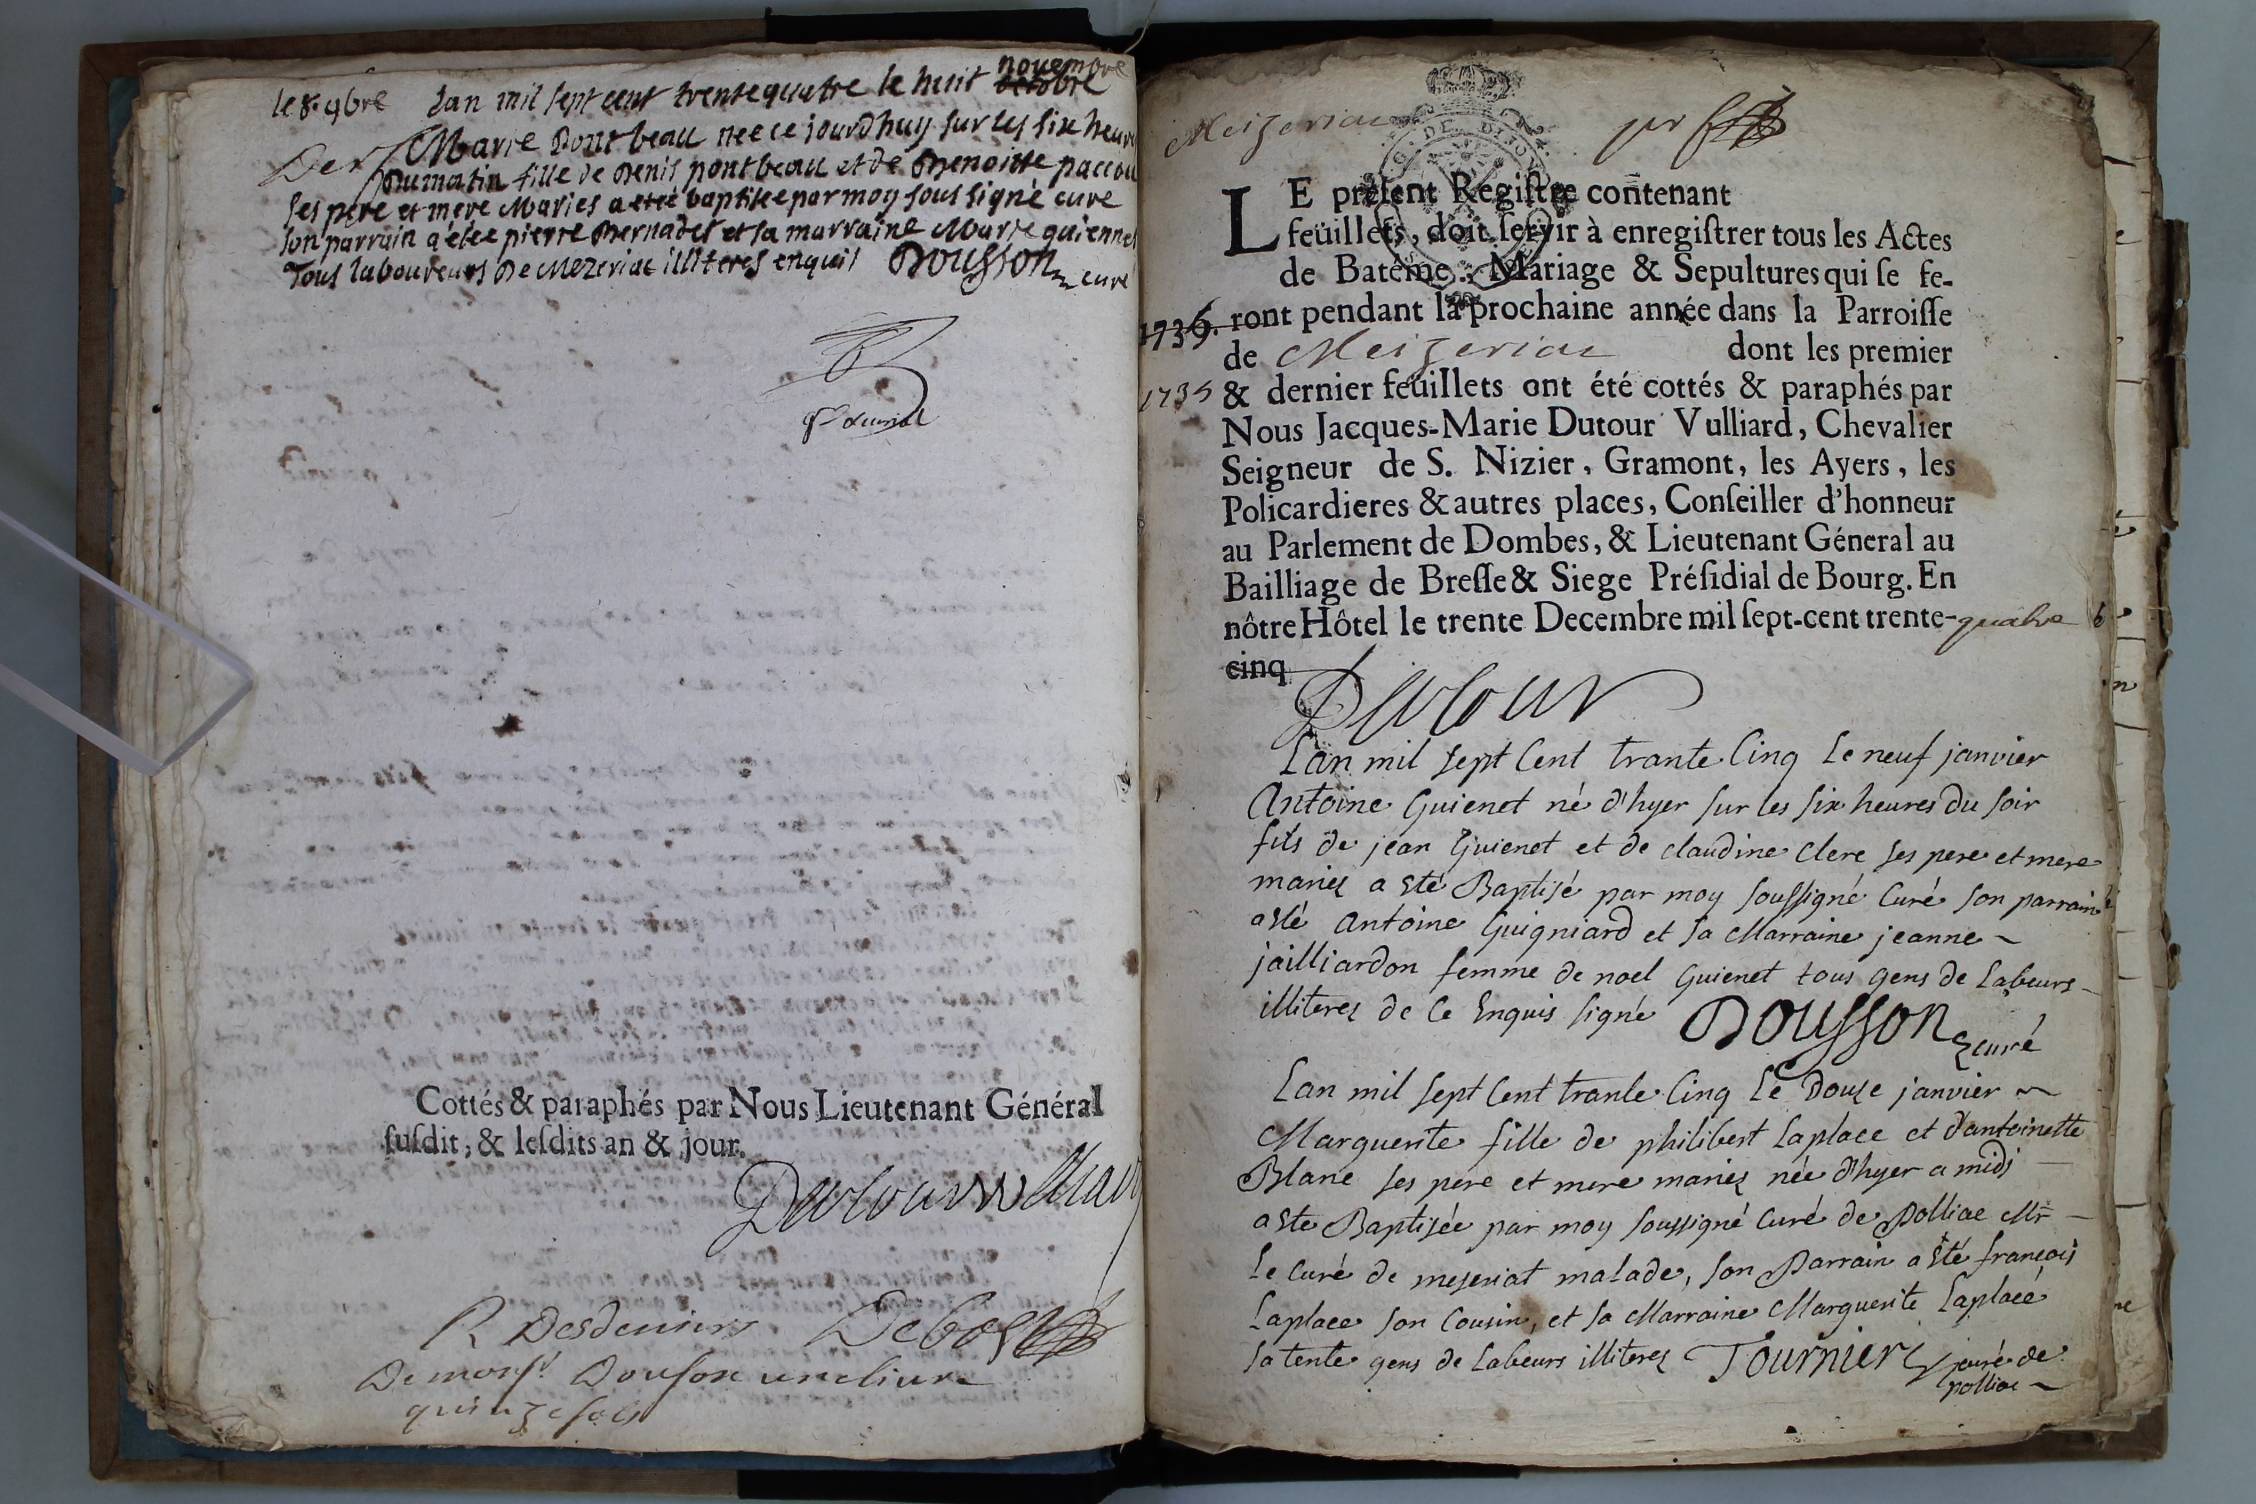 le 8. 9bre Lan mil sept cent trentequatre le huit novembre
octobre
Der Marie Pont beau neé ce jourdhuy sur les six heures
Du matin fille de Denis pont beau et de Benoiste paccou
ses pere et mere Maries a eteé baptiseé par moy sous signé curé
son parrain a éteé pierre Bernadet et sa marraine Marie guiennet
Tous laboureurs De Mezeriat illiteres enquis Dousson curé
Cottés & paraphés par Nous Lieutenant Général
suſdit, & leſdits an & jour.
Dutour Vulliard
R Desdeniers Debost
De monsr Douson une livre
quinze sols
Meizeriat pr
LE préſent Regiſtre contenant
feüillets, doit ſervir à enregiſtrer tous les Actes
de Batême, Mariage & Sepultures qui ſe fe-
1736. ront pendant la prochaine année dans la Parroiſſe
de Meizeriat dont les premier
1735 & dernier feuillets ont été cottés & paraphés par
Nous Jacques-Marie Dutour Vulliard, Chevalier
Seigneur de S. Nizier, Gramont, les Ayers, les
Policardieres & autres places, Conſeiller d'honneur
au Parlement de Dombes, & Lieutenant Géneral au
Bailliage de Breſſe & Siege Préſidial de Bourg. En
nôtre Hôtel le trente Decembre mil ſept-cent trente-quatre
cinq
Dutour
Lan mil sept Cent trante Cinq Le neuf janvier
Antoine Guienet né d'hyer sur les six heures du soir
fils de jean Guienet et de claudine Clere ses pere et mere
mariez a sté Baptisé par moy soussigné Curé son parrain
a sté Antoine Guigniard et sa Marraine jeanne ~
jailliardon femme de noel Guienet tous gens de Labeurs
illiterez de Ce Enquis signé Dousson curé
Lan mil sept Cent trante Cinq Le Douze janvier ~
Marguerite fille de philibert Laplace et d'antoinette
Blanc ses pere et mere mariez née d'hyer a midi
a ste Baptisée par moy soussigné Curé de Polliac Mr
Le Curé de mezeriat malade, son Parrain a sté françois
Laplace son Cousin, et sa Marraine Marguerite Laplace
sa tente gens de Labeurs illiterez Tournier curé de
polliac ~